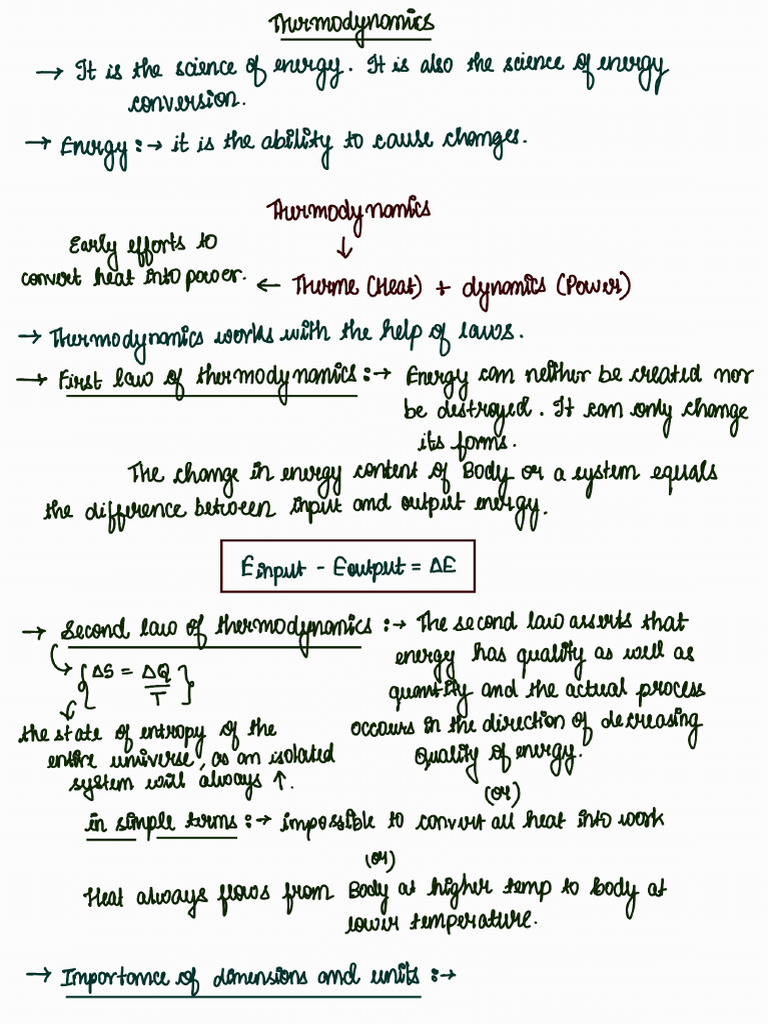 Thermodynamics
→ It is the science of energy. It is also the science of energy
conversion.
→ Energy :→ it is the ability to cause changes.
Thermodynamics
↓
Early efforts to
convert heat into power. ← Therme (Heat) + dynamics (Power)
→ Thermodynamics works with the help of laws.
→ First law of thermodynamics :→ Energy can neither be created nor
be destroyed. It can only change
its forms.
The change in energy content of Body or a system equals
the difference between input and output energy.
Einput - Eoutput = ΔE
→ Second law of thermodynamics :→ The second law asserts that
energy has quality as well as
quantity and the actual process
occurs in the direction of decreasing
quality of energy.
{ΔS = ΔQ/T}
the state of entropy of the
entire universe, as an isolated
system will always ↑.
(or)
in simple terms :→ impossible to convert all heat into work
(or)
Heat always flows from Body at higher temp to body at
lower temperature.
→ Importance of dimensions and units :→